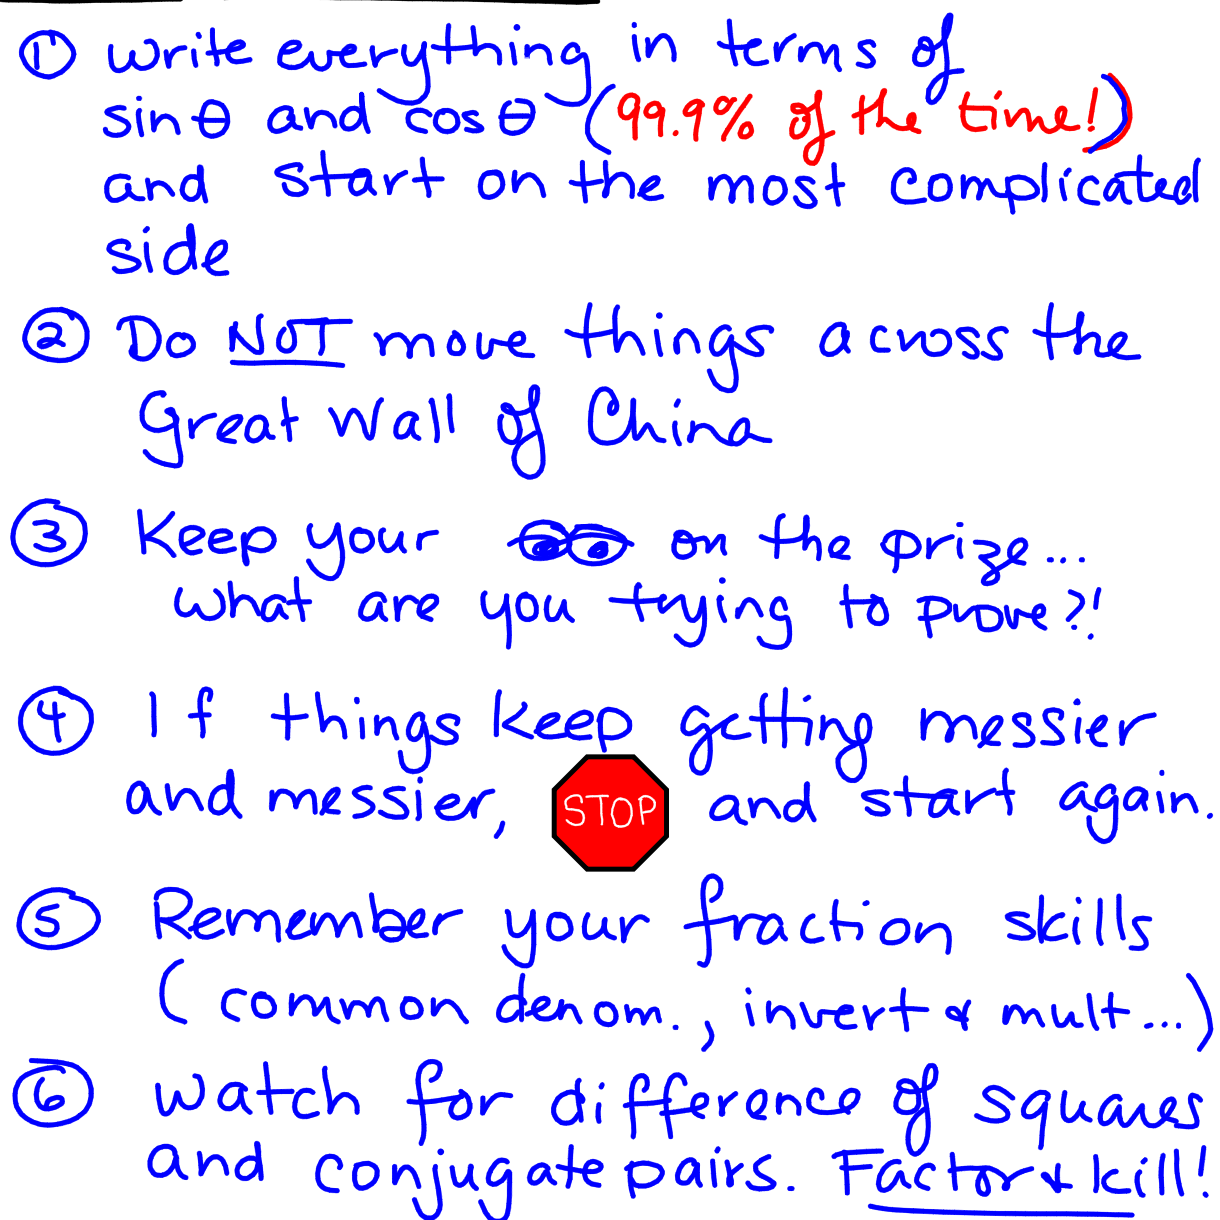 ① Write everything in terms of
sinθ and cosθ (99.9% of the time!)
and start on the most complicated
side
② Do NOT move things across the
Great Wall of China
③ Keep your on the prize...
what are you trying to prove?!
④ If things keep getting messier
and messier, STOP and start again.
⑤ Remember your fraction skills
(common denom., invert & mult...)
⑥ Watch for difference of squares
and conjugate pairs. Factor & kill!